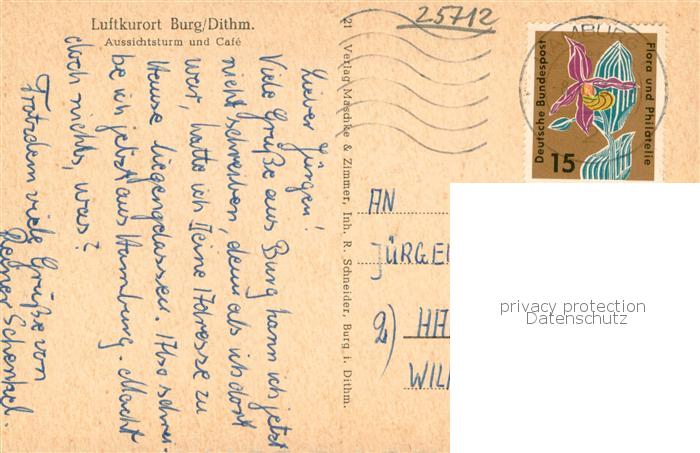 Luftkurort Burg/Dithm.
Aussichtsturm und Café
Lieber Jürgen!
Viele Grüße aus Burg kann ich jetzt
nicht schreiben, denn als ich dort
war, hatte ich Deine Adresse zu
Hause liegengelassen. Also schrei-
be ich jetzt aus Hamburg. Macht
doch nichts, was?
Trotzdem viele Grüße von
Schenkel.
21 Verlag Maschke & Zimmer, Inh. R. Schneider, Burg i. Dithm.
25712
Deutsche Bundespost
Flora und Philatelie
15
AN
JÜRGE
2) HA
WIL
privacy protection
Datenschutz